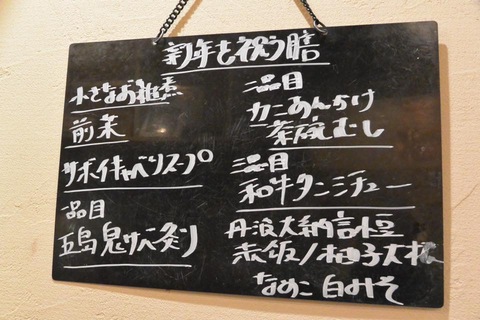 新年を祝う膳
小さなお雑煮
前菜
サボイキャベツスープ
一品目
五島鬼サバ炙り
二品目
カニあんかけ
茶碗むし
三品目
和牛タンシチュー
丹波大納言小豆
赤飯/柚子大根
なめこ白みそ